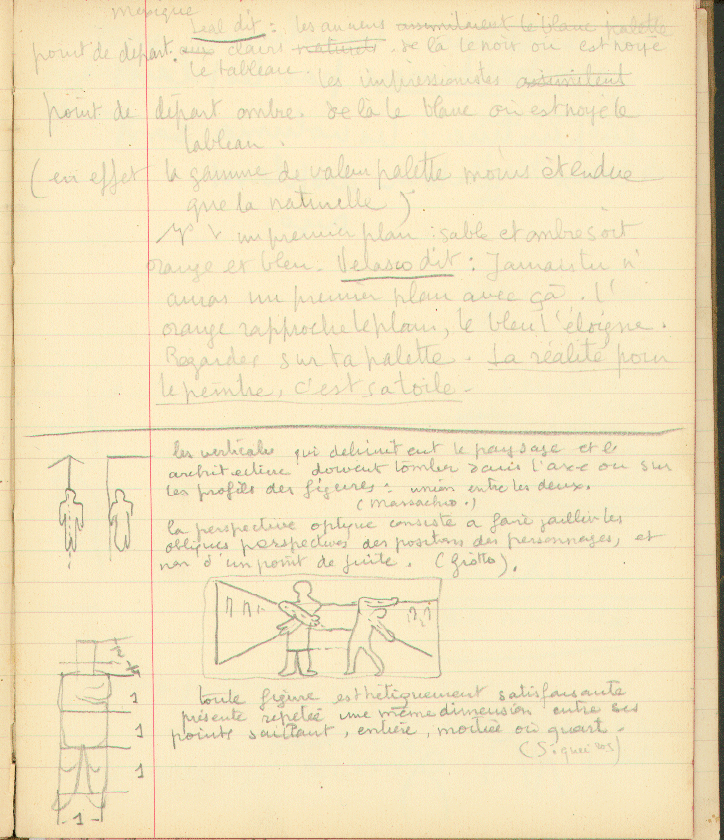 mexique
Leal dit : les anciens assimilaient le blanc palette
point de départ. aux clairs naturels. de là le noir où est noyé
le tableau. les impressionistes assimilent
point de départ ombre. de là le blanc où est noyé le
tableau.
(en effet la gamme de valeur palette moins étendue
que la naturelle)
un premier plan : sable et ombre soit
orange et bleu. Velasco dit : Jamais tu n'
auras un premier plan avec ça. l'
orange rapproche le plan, le bleu l'éloigne.
Regardes sur ta palette. La réalité pour
le peintre, c'est sa toile.
les verticales qui délimitent le paysage et le
architecture doivent tomber dans l'axe ou sur
les profils des figures : union entre les deux.
(Massachio.)
la perspective optique consiste a faire jaillir les
obliques perspectives des positions des personnages, et
non d'un point de fuite. (Giotto).
1/2
1
1
1
1
toute figure esthétiquement satisfaisante
présente repetée une même dimension entre ses
points saillant, entière, moitiée ou quart.
(Siqueiros)